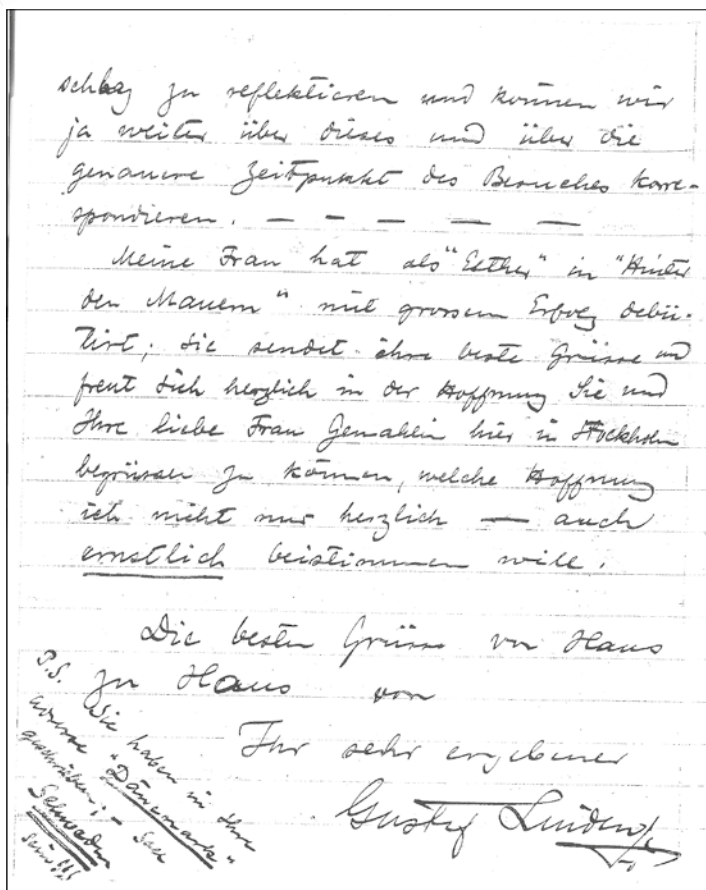 schlag zu reflektieren und können wir
ja weiter über dieses und über die
genauere Zeitpunkt des Besuches korre-
spondieren. — — — — —
Meine Frau hat als "Esther" in "Hinter
den Mauern" mit grossem Erfolg debü-
tirt; sie sendet ihre beste Grüsse und
freut sich herzlich in der Hoffnung Sie und
Ihre liebe Frau Gemahlin hier in Stockholm
begrüssen zu können, welche Hoffnung
ich nicht nur herzlich — auch
ernstlich beistimmen will.
Die besten Grüsse von Haus
zu Haus von
Ihr sehr ergebener
Gustaf Linden
P.S. Sie haben in Ihre
adresse "Dänemark"
geschrieben; – Soll
Schweden
sein!!!